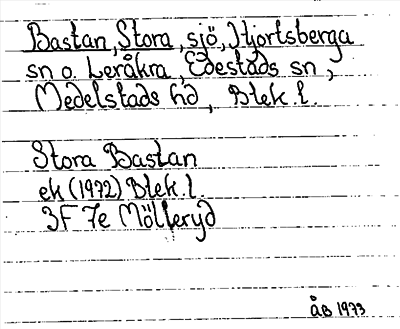 Bastan, Stora, sjö, Hjortsberga
sn o. Leråkra, Edestads sn,
Medelstads hd, Blek. l.
Stora Bastan
ek (1972) Blek. l.
3F 7e Möljeryd
ÅB 1973